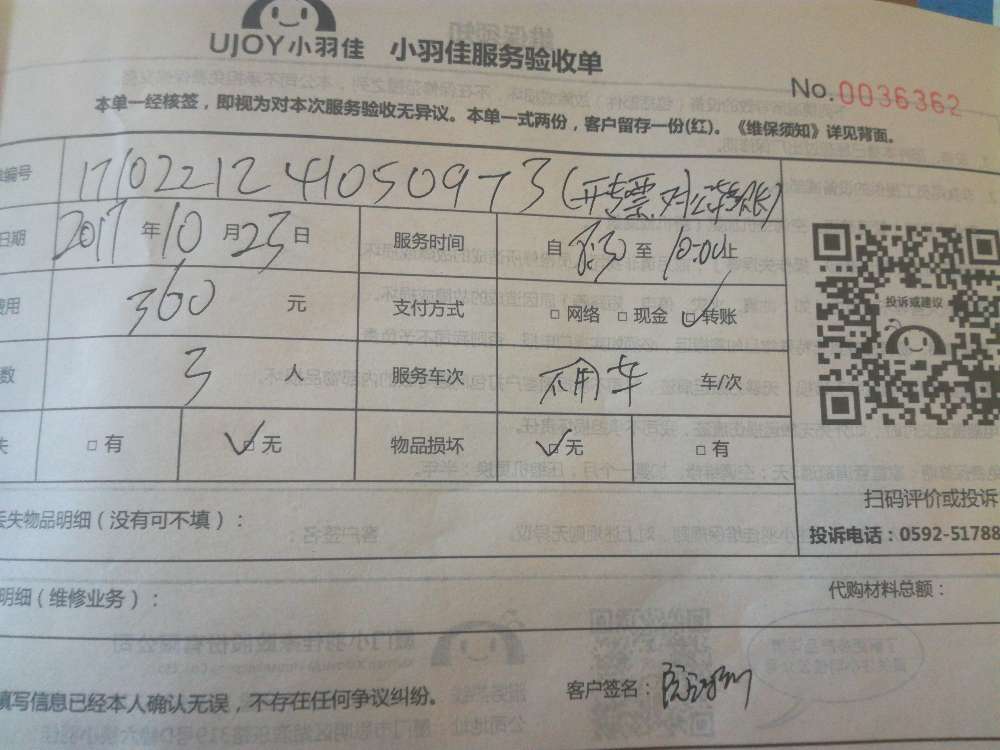 UJOY小羽佳 小羽佳服务验收单
No.0036362
本单一经核签，即视为对本次服务验收无异议。本单一式两份，客户留存一份(红)。《维保须知》详见背面。
编号 1710221241050973(开专票,对公转账)
日期 2017年10月23日 服务时间 自8:30至10:00止
费用 360元 支付方式 □网络 □现金 ☑转账
数 3人 服务车次 不用车 车/次
失 □有 ☑无 物品损坏 ☑无 □有
投诉或建议
扫码评价或投诉
投诉电话：0592-51788
丢失物品明细（没有可不填）：
明细（维修业务）： 代购材料总额：
填写信息已经本人确认无误，不存在任何争议纠纷。 客户签名：